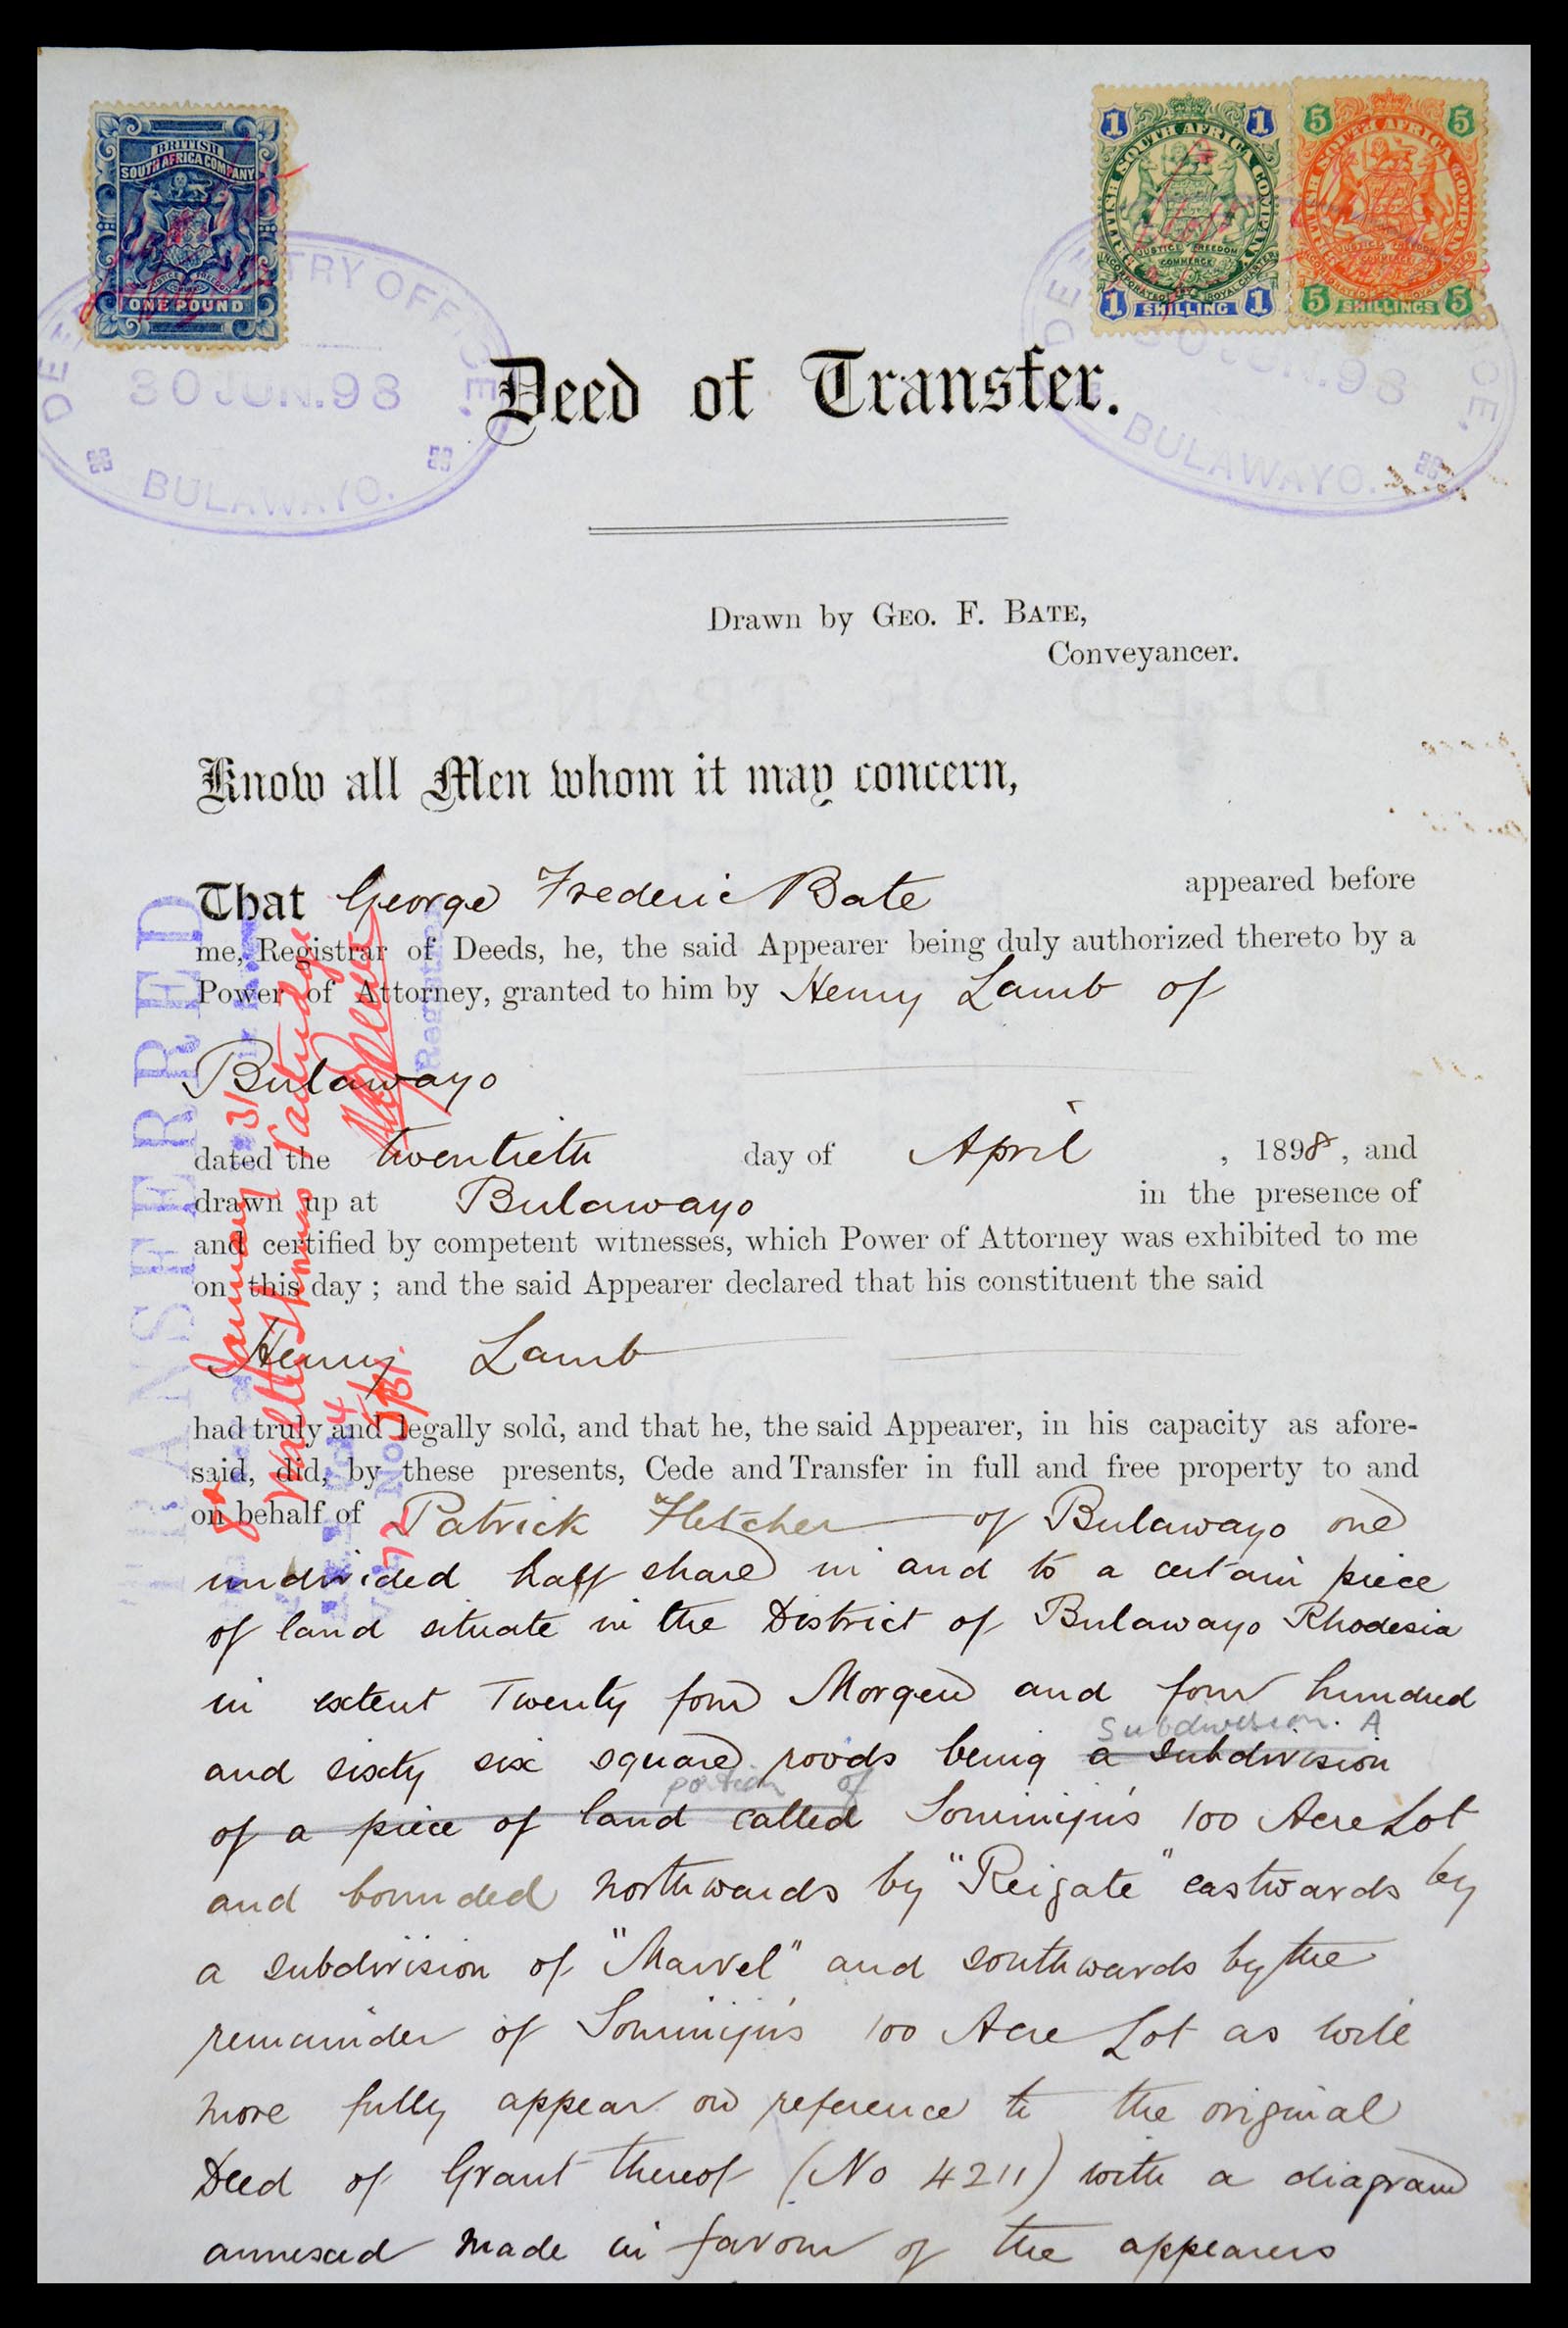 BRITISH
SOUTH AFRICA COMPANY
JUSTICE FREEDOM
ONE POUND
1 1
BRITISH SOUTH AFRICA COMPANY
JUSTICE FREEDOM
COMMERCE
INCORPORATED BY ROYAL CHARTER
1 SHILLING 1
5 5
BRITISH SOUTH AFRICA COMPANY
JUSTICE FREEDOM
COMMERCE
INCORPORATED BY ROYAL CHARTER
5 SHILLINGS 5
30 JUN.98
BULAWAYO.
JUN.98
BULAWAYO.
Deed of Transfer.
Drawn by GEO. F. BATE,
Conveyancer.
DEED OF TRANSFER
Know all Men whom it may concern,
That George Frederic Bate appeared before
me, Registrar of Deeds, he, the said Appearer being duly authorized thereto by a
Power of Attorney, granted to him by Henry Lamb of
Bulawayo
dated the twentieth day of April , 1898, and
drawn up at Bulawayo in the presence of
and certified by competent witnesses, which Power of Attorney was exhibited to me
on this day ; and the said Appearer declared that his constituent the said
Henry Lamb
had truly and legally sold, and that he, the said Appearer, in his capacity as afore-
said, did, by these presents, Cede and Transfer in full and free property to and
on behalf of Patrick Fletcher of Bulawayo one
undivided half share in and to a certain piece
of land situate in the District of Bulawayo Rhodesia
in extent Twenty four Morgen and four hundred
Subdivision. A
and sixty six square roods being a subdivision
portion of
of a piece of land called 100 Acre Lot
and bounded northwards by "Reigate" eastwards by
a subdivision of "Marvel" and southwards by the
remainder of 100 Acre Lot as will
more fully appear on reference to the original
Deed of Grant thereof (No 4211) with a diagram
annexed made in favour of the appearers
TRANSFERRED
8th January 31
Walter Thomas Partridge
Registrar